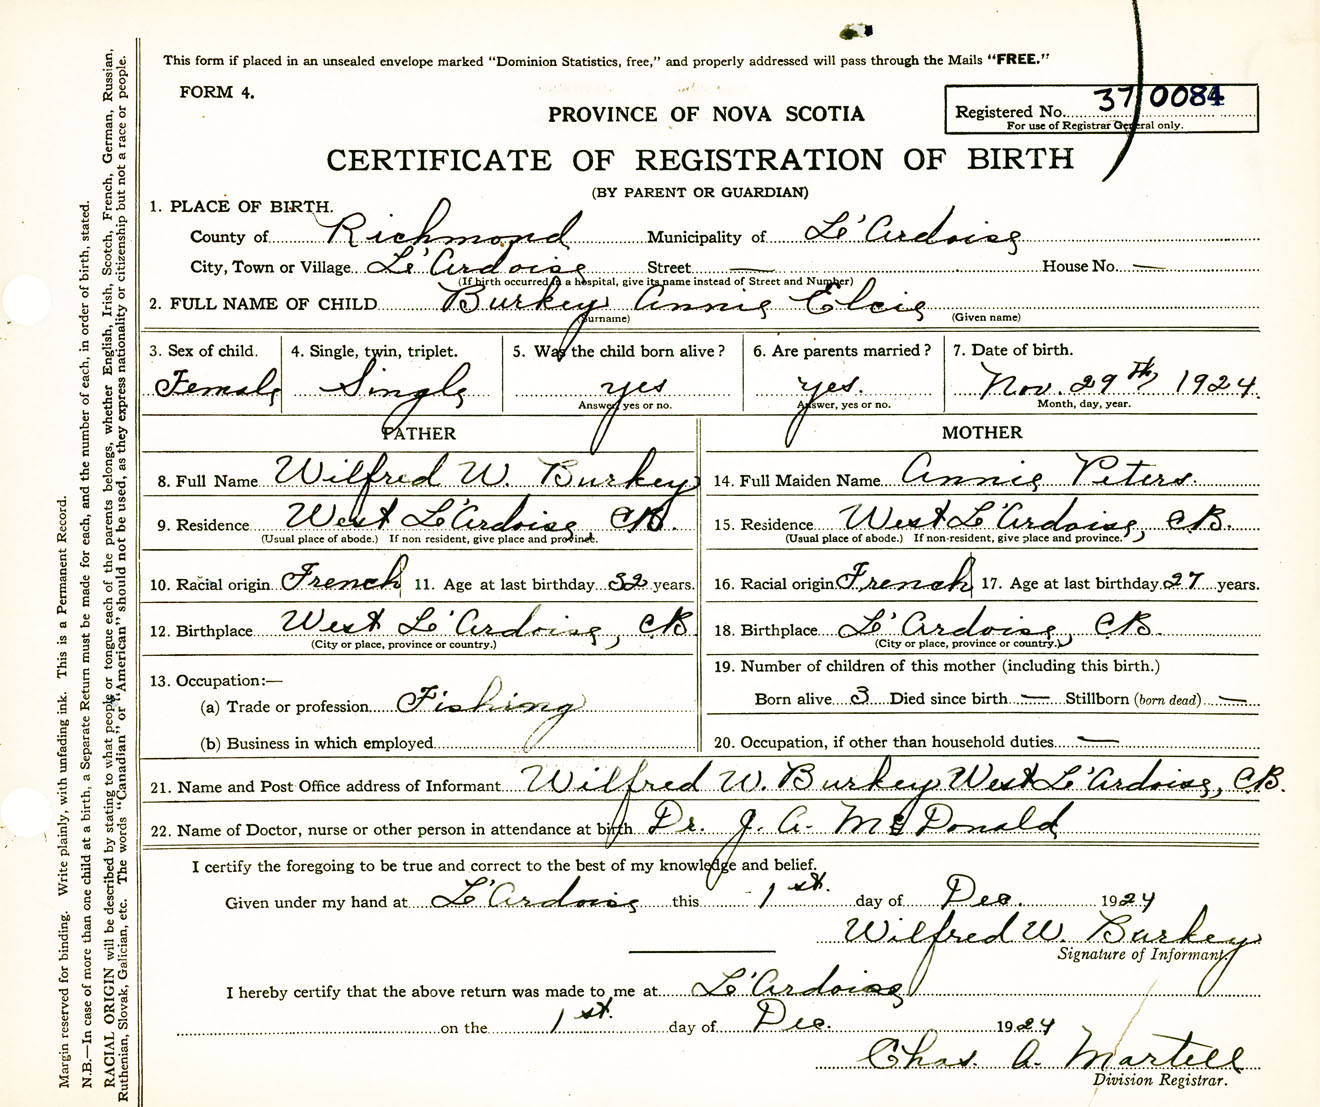 This form if placed in an unsealed envelope marked "Dominion Statistics, free," and properly addressed will pass through the Mails "FREE."
FORM 4.
PROVINCE OF NOVA SCOTIA
Registered No. 37 0084
For use of Registrar General only.
CERTIFICATE OF REGISTRATION OF BIRTH
(BY PARENT OR GUARDIAN)
1. PLACE OF BIRTH.
County of Richmond Municipality of L'Ardoise
City, Town or Village L'Ardoise Street — House No. —
(If birth occurred in a hospital, give its name instead of Street and Number)
2. FULL NAME OF CHILD Burkey Annie Elcie
(Surname) (Given name)
3. Sex of child. 4. Single, twin, triplet. 5. Was the child born alive? 6. Are parents married? 7. Date of birth.
Female Single yes yes. Nov. 29th, 1924.
Answer, yes or no. Answer, yes or no. Month, day, year.
FATHER MOTHER
8. Full Name Wilfred W. Burkey 14. Full Maiden Name Annie Peters.
9. Residence West L'Ardoise C.B. 15. Residence West L'Ardoise, C.B.
(Usual place of abode.) If non resident, give place and province. (Usual place of abode.) If non-resident, give place and province.
10. Racial origin French 11. Age at last birthday 32 years. 16. Racial origin French 17. Age at last birthday 27 years.
12. Birthplace West L'Ardoise, C.B. 18. Birthplace L'Ardoise, C.B.
(City or place, province or country.) (City or place, province or country.)
13. Occupation:— 19. Number of children of this mother (including this birth.)
(a) Trade or profession Fishing Born alive 3 Died since birth — Stillborn (born dead) —
(b) Business in which employed 20. Occupation, if other than household duties —
21. Name and Post Office address of Informant Wilfred W. Burkey West L'Ardoise, C.B.
22. Name of Doctor, nurse or other person in attendance at birth Dr. J. A. McDonald
I certify the foregoing to be true and correct to the best of my knowledge and belief.
Given under my hand at L'Ardoise this 1st. day of Dec. 1924
Wilfred W. Burkey
Signature of Informant.
I hereby certify that the above return was made to me at L'Ardoise
on the 1st. day of Dec. 1924
Chas. A. Martell
Division Registrar.
Margin reserved for binding. Write plainly, with unfading ink. This is a Permanent Record.
N.B.—In case of more than one child at a birth, a Separate Return must be made for each, and the number of each, in order of birth, stated.
RACIAL ORIGIN will be described by stating to what people or tongue each of the parents belongs, whether English, Irish, Scotch, French, German, Russian,
Ruthenian, Slovak, Galician, etc. The words "Canadian" or "American" should not be used, as they express nationality or citizenship but not a race or people.